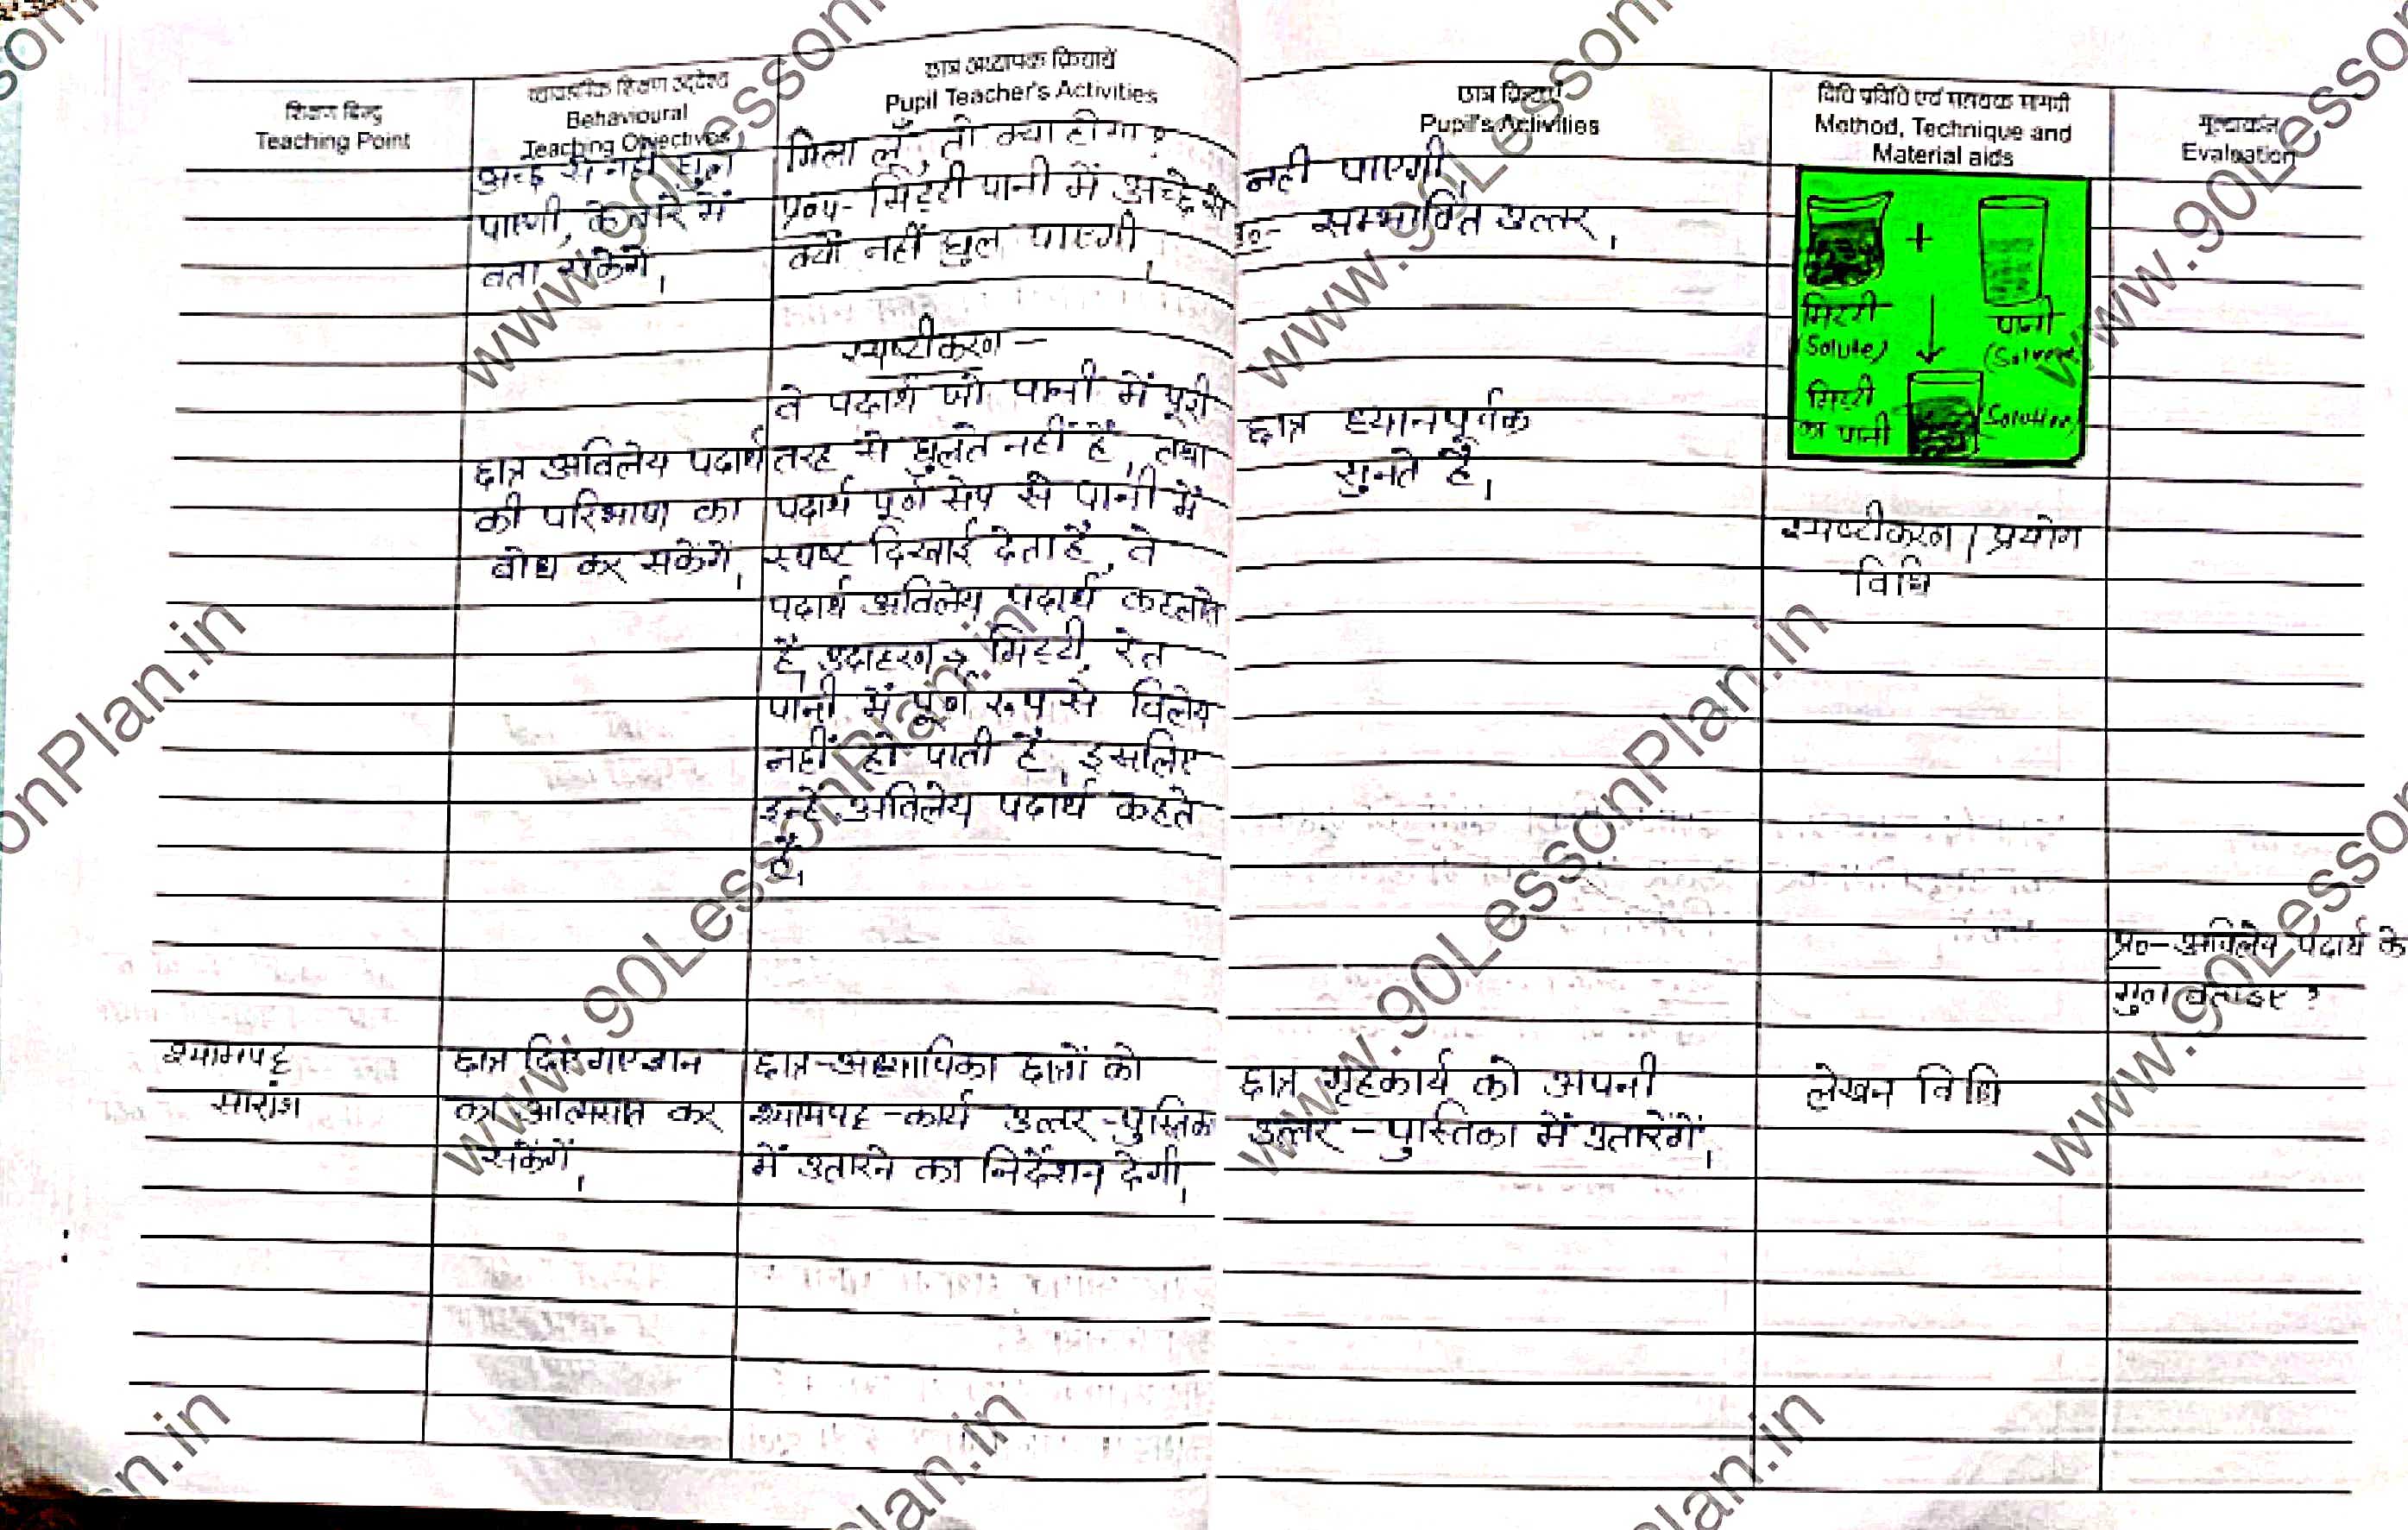 शिक्षण बिन्दु
Teaching Point
व्यावहारिक शिक्षण उद्देश्य
Behavioural
Teaching Objectives
छात्र अध्यापक क्रियायें
Pupil Teacher's Activities
छात्र क्रियाएं
Pupil's Activities
विधि प्रविधि एवं सहायक सामग्री
Method, Technique and
Material aids
मूल्यांकन
Evaluation
अच्छे से नहीं घुल
पाएगी, के बारे में
बता सकेंगे।
छात्र अविलेय पदार्थ
की परिभाषा का
बोध कर सकेंगें।
मिला लूँ, तो क्या होगा?
प्र०५- मिट्टी पानी में अच्छे से
क्यों नहीं घुल पाएगी।
स्पष्टीकरण –
वे पदार्थ जो पानी में पूरी
तरह से घुलते नहीं है, तथा
पदार्थ पूर्ण सेप से पानी में
स्पष्ट दिखाई देता है, वे
पदार्थ अविलेय पदार्थ कहलाते
है, उदाहरण → मिट्टी, रेत
पानी में पूर्ण रूप से विलेय
नहीं हो पाती हैं, इसलिए
इन्हें अविलेय पदार्थ कहते
हैं।
नही पाएगी।
उ०- सम्भावित उत्तर।
छात्र ध्यानपूर्वक
सुनते है।
मिट्टी
(Solute)
+
पानी
(Solvent)
मिट्टी
का पानी
(Solution)
स्पष्टीकरण / प्रयोग
विधि
प्र०- अविलेय पदार्थ के
गुण बताइए ?
श्यामपट्ट
सारांश
छात्र दिए गए ज्ञान
का आत्मसात कर
सकेंगें।
छात्र-अध्यापिका छात्रों को
श्यामपट्ट-कार्य उत्तर-पुस्तिका
में उतारने का निर्देशन देगी।
छात्र गृहकार्य को अपनी
उत्तर-पुस्तिका में उतारेंगें।
लेखन विधि
www.90LessonPlan.in
www.90LessonPlan.in